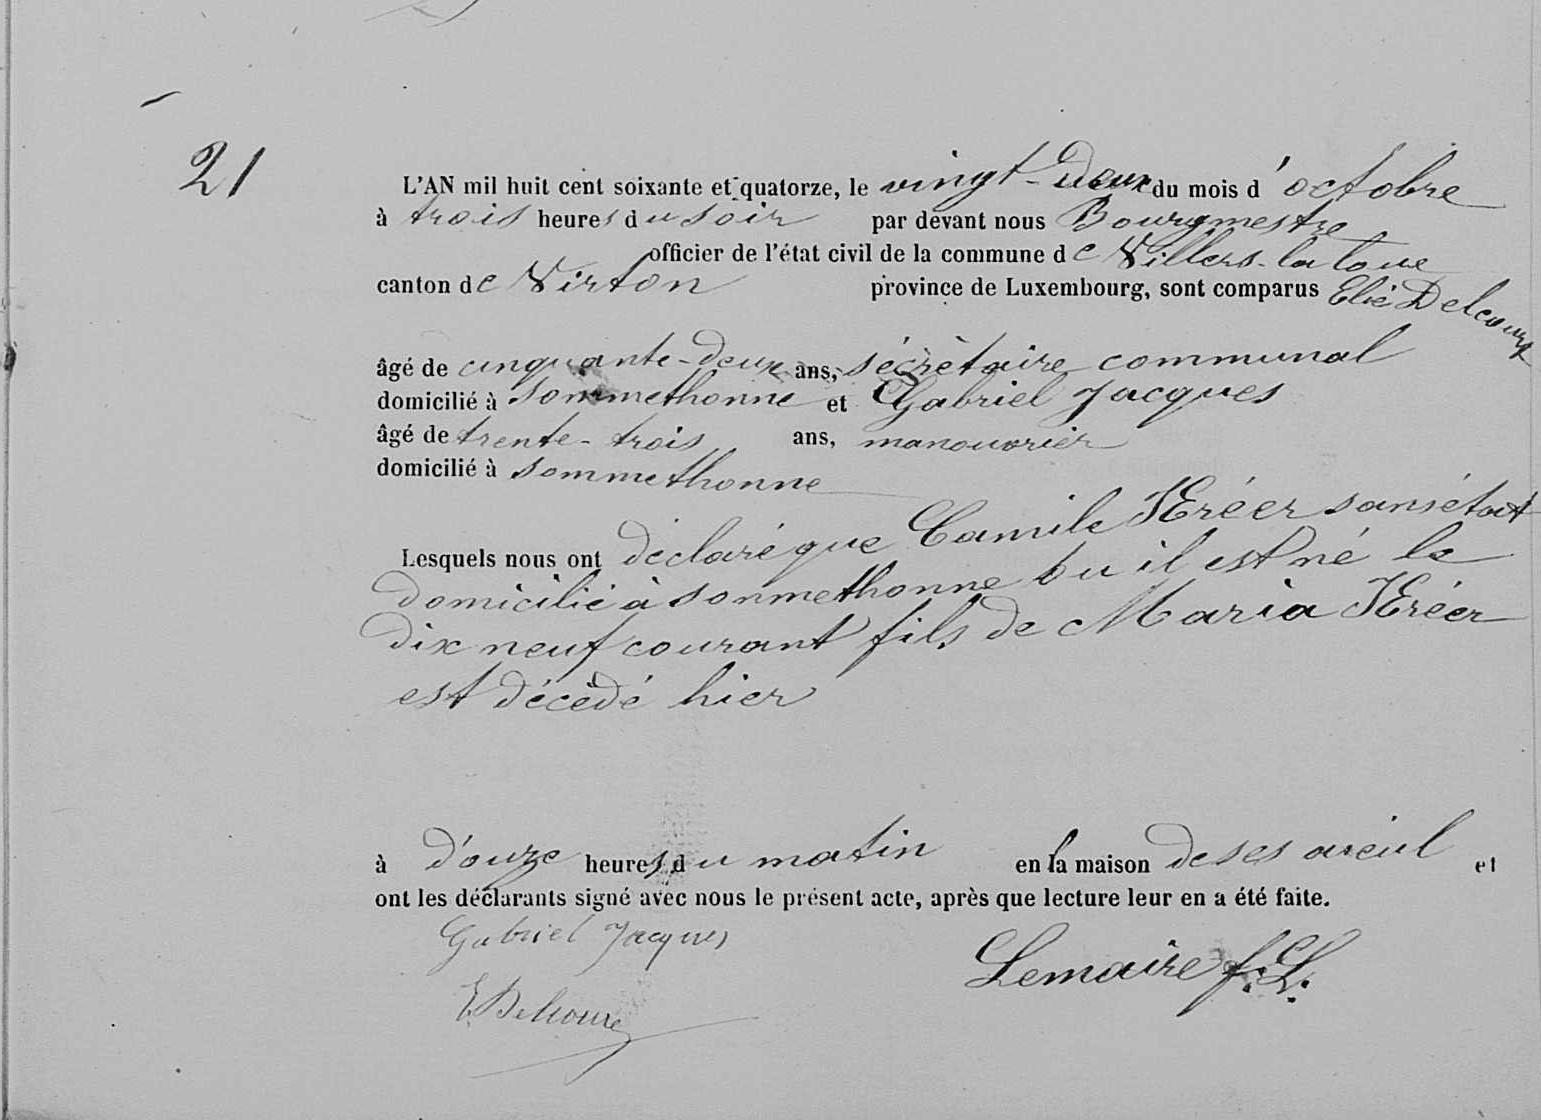 21
L'AN mil huit cent soixante et quatorze, le vingt-deux du mois d'octobre
à trois heures du soir par devant nous Bourgmestre
officier de l'état civil de la commune de Villers-la loue
canton de Virton province de Luxembourg, sont comparus Elie Delcourt
âgé de cinquante-deux ans, sécrètaire communal
domicilié à sommethonne et Gabriel Jacques
âgé de trente-trois ans, manouvrier
domicilié à sommethonne
Lesquels nous ont déclaré que Camile Kréer sans état
domicilié à sommethonne ou il est né le
dix neuf courant fils de Maria Kréer
est décèdé hier
à d'ouze heures du matin en la maison de ses aieul et
ont les déclarants signé avec nous le présent acte, après que lecture leur en a été faite.
Gabriel Jacques
Lemaire f. L.